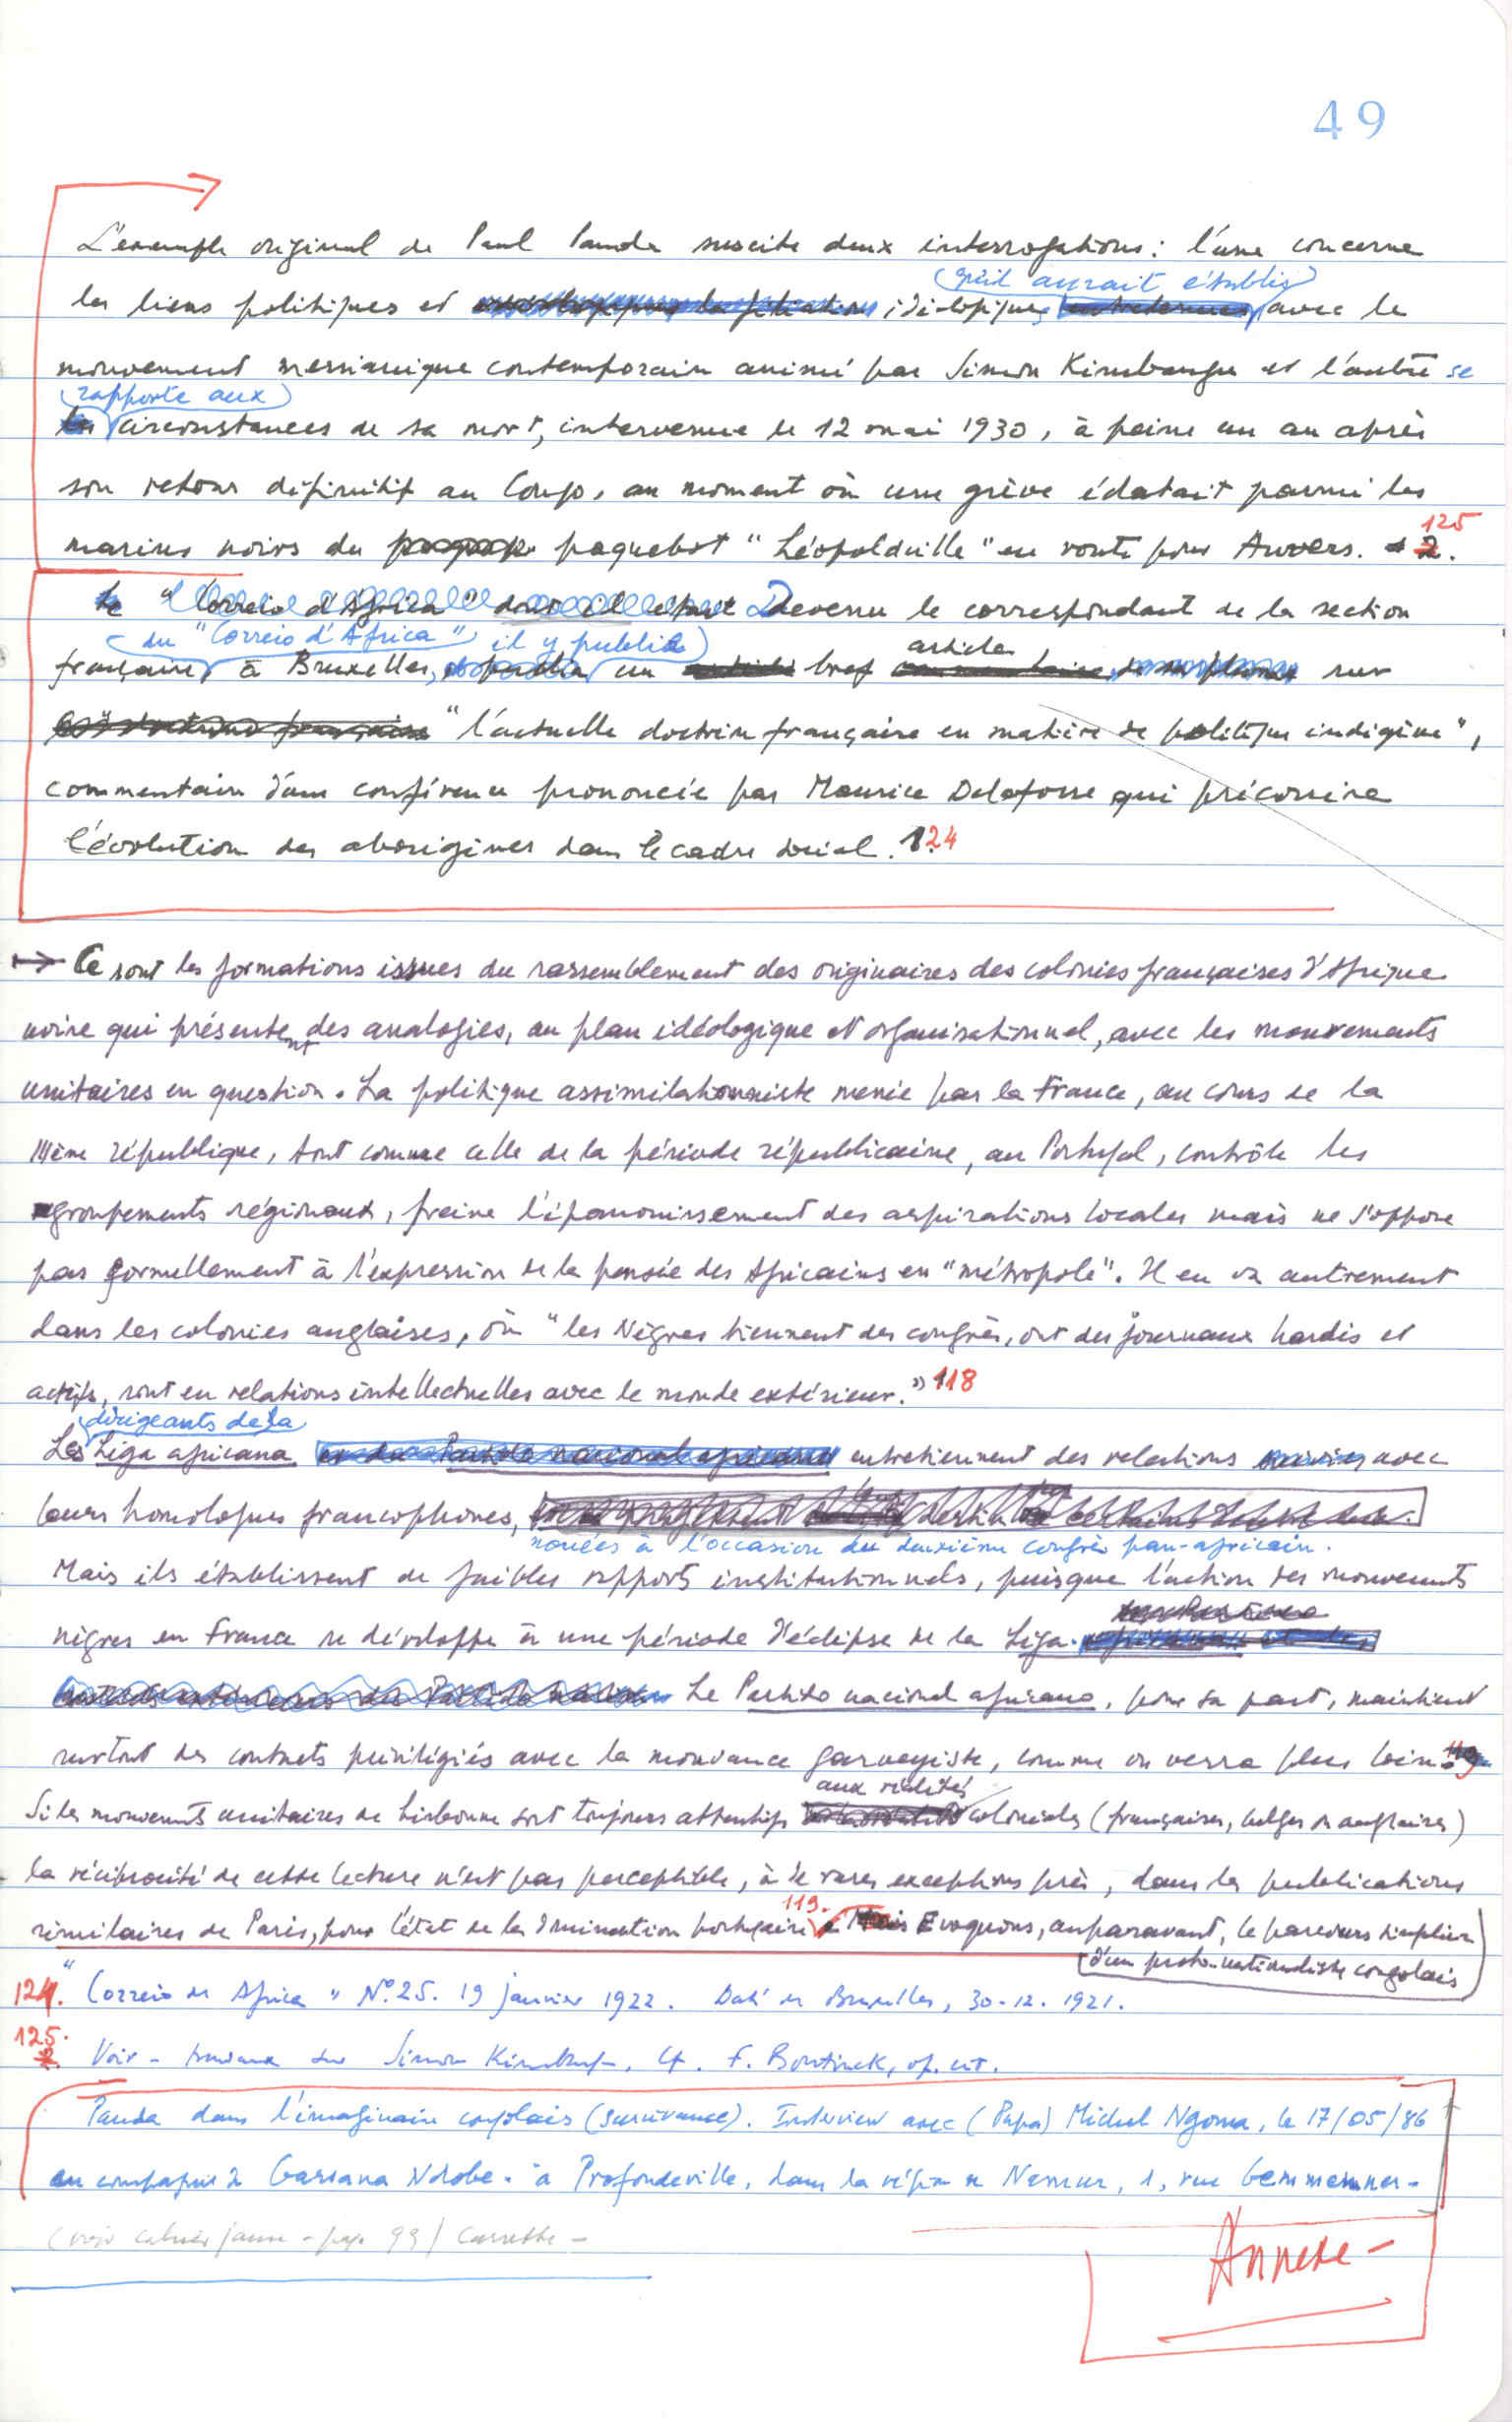 49
L'exemple original de Paul Panda suscite deux interrogations : l'une concerne
qu'il aurait établis
les liens politiques et idéologiques avec le
mouvement messianique contemporain animé par Simon Kimbangu et l'autre se
rapporte aux
circonstances de sa mort, intervenue le 12 mai 1930, à peine un an après
son retour définitif au Congo, au moment où une grève éclatait parmi les
marins noirs du paquebot "Léopoldville" en route pour Anvers. 125
Le "Correio d'Africa" dont il était Devenu le correspondant de la section
du "Correio d'Africa" il y publia
française à Bruxelles, et publia un article bref article sur
"l'actuelle doctrine française en matière de politique indigène",
commentaire d'une conférence prononcée par Maurice Delafosse qui préconise
l'évolution des aborigènes dans le cadre social. 124
→ Ce sont les formations issues du rassemblement des originaires des colonies françaises d'Afrique
noire qui présentent des analogies, au plan idéologique et organisationnel, avec les mouvements
unitaires en question. La politique assimilationniste menée par la France, au cours de la
IIIème république, tout comme celle de la période républicaine, au Portugal, contrôle les
groupements régionaux, freine l'épanouissement des aspirations locales mais ne s'oppose
pas formellement à l'expression de la pensée des Africains en "métropole". Il en va autrement
dans les colonies anglaises, où "les Nègres tiennent des congrès, ont des journaux hardis et
actifs, sont en relations intellectuelles avec le monde extérieur." 118
dirigeants de la
Les Liga africana entretiennent des relations suivies avec
leurs homologues francophones,
nouées à l'occasion du deuxième congrès pan-africain.
Mais ils établissent de faibles rapports institutionnels, puisque l'action des mouvements
nègres en France se développe à une période d'éclipse de la Liga.
Le Partido nacional africano, pour sa part, maintient
surtout des contacts privilégiés avec la mouvance garveyiste, comme on verra plus loin.
aux réalités
Si les mouvements unitaires de Lisbonne sont toujours attentifs coloniales (françaises, belges ou anglaises)
la réciprocité de cette lecture n'est pas perceptible, à de rares exceptions près, dans les publications
similaires de Paris, pour l'état de la domination portugaise 119. Mais Evoquons, auparavant, le parcours
d'un proto-nationaliste congolais
124. "Correio de Africa" Nº 25. 19 janvier 1922. Daté de Bruxelles, 30-12-1921.
125. Voir - travaux sur Simon Kimbangu. Cf. F. Bontinck, op. cit.
Panda dans l'imaginaire congolais (survivance). Interview avec (Papa) Michel Ngoma, le 17/05/86
en compagnie de Ndobe. à Profondeville, dans la région de Namur, 1, rue
(voir cahier jaune - page 99)
Annexe -